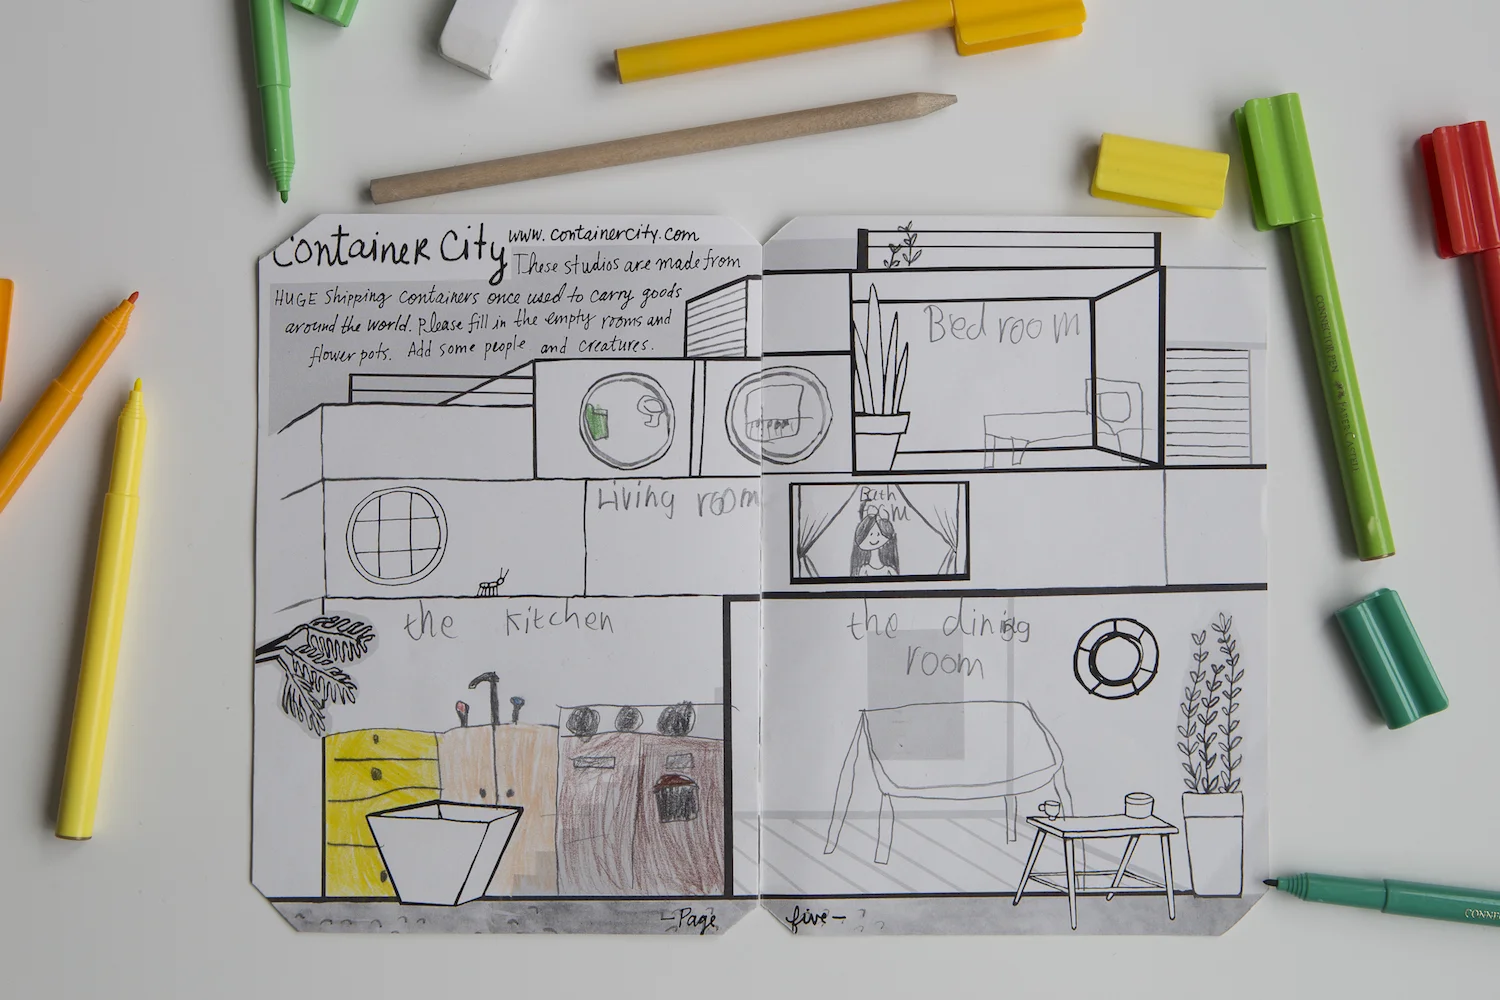 Container City
www.containercity.com
These studios are made from
HUGE Shipping containers once used to carry goods
around the world. Please fill in the empty rooms and
flower pots. Add some people and creatures.
Bedroom
Living room
Bath
room
the kitchen
the dining
room
-Page
five-